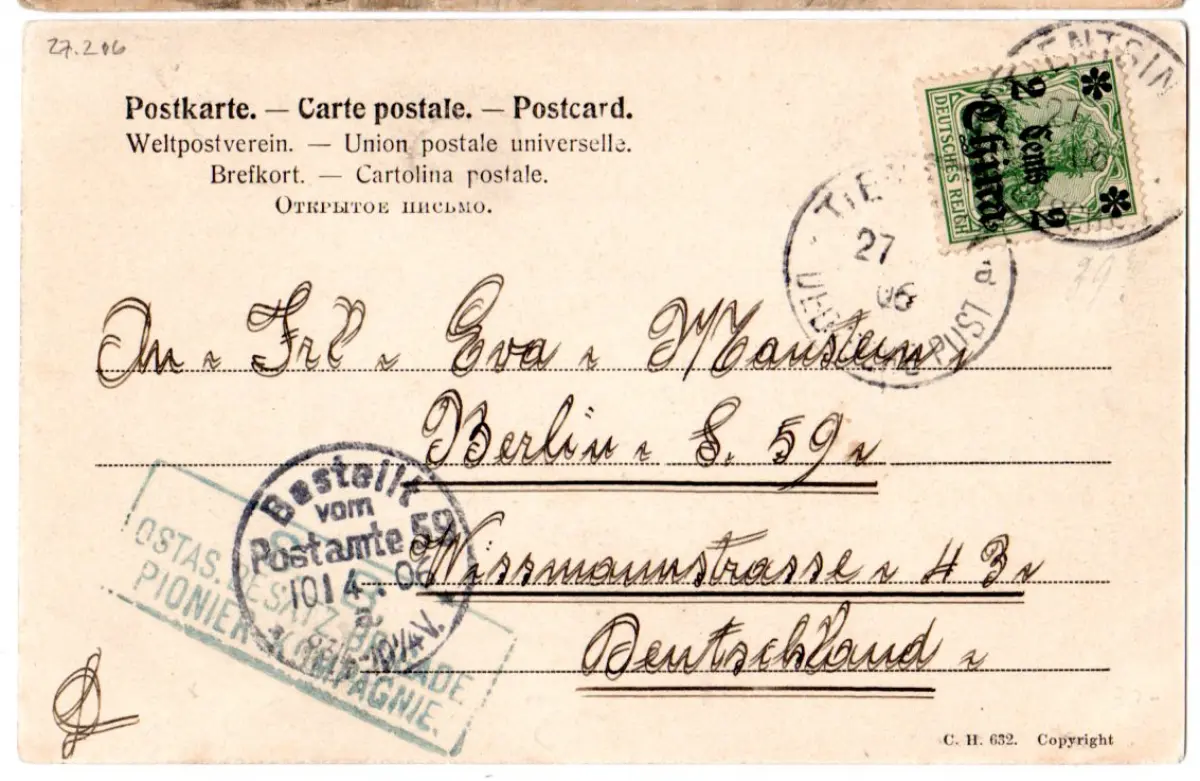 27.2 06
Postkarte. — Carte postale. — Postcard.
Weltpostverein. — Union postale universelle.
Brefkort. — Cartolina postale.
Открытое письмо.
TIENTSIN
27
DEUTSCHES REICH
2 Cents 2
China
27
06
POST a
An Frl. Eva Manstein
Berlin S. 59
Wissmannstrasse 43
Deutschland
Bestellt
vom
Postamte 59
10/4.06
OSTAS. BESATZ. BRIGADE
PIONIER-KOMPAGNIE.
C. H. 632. Copyright